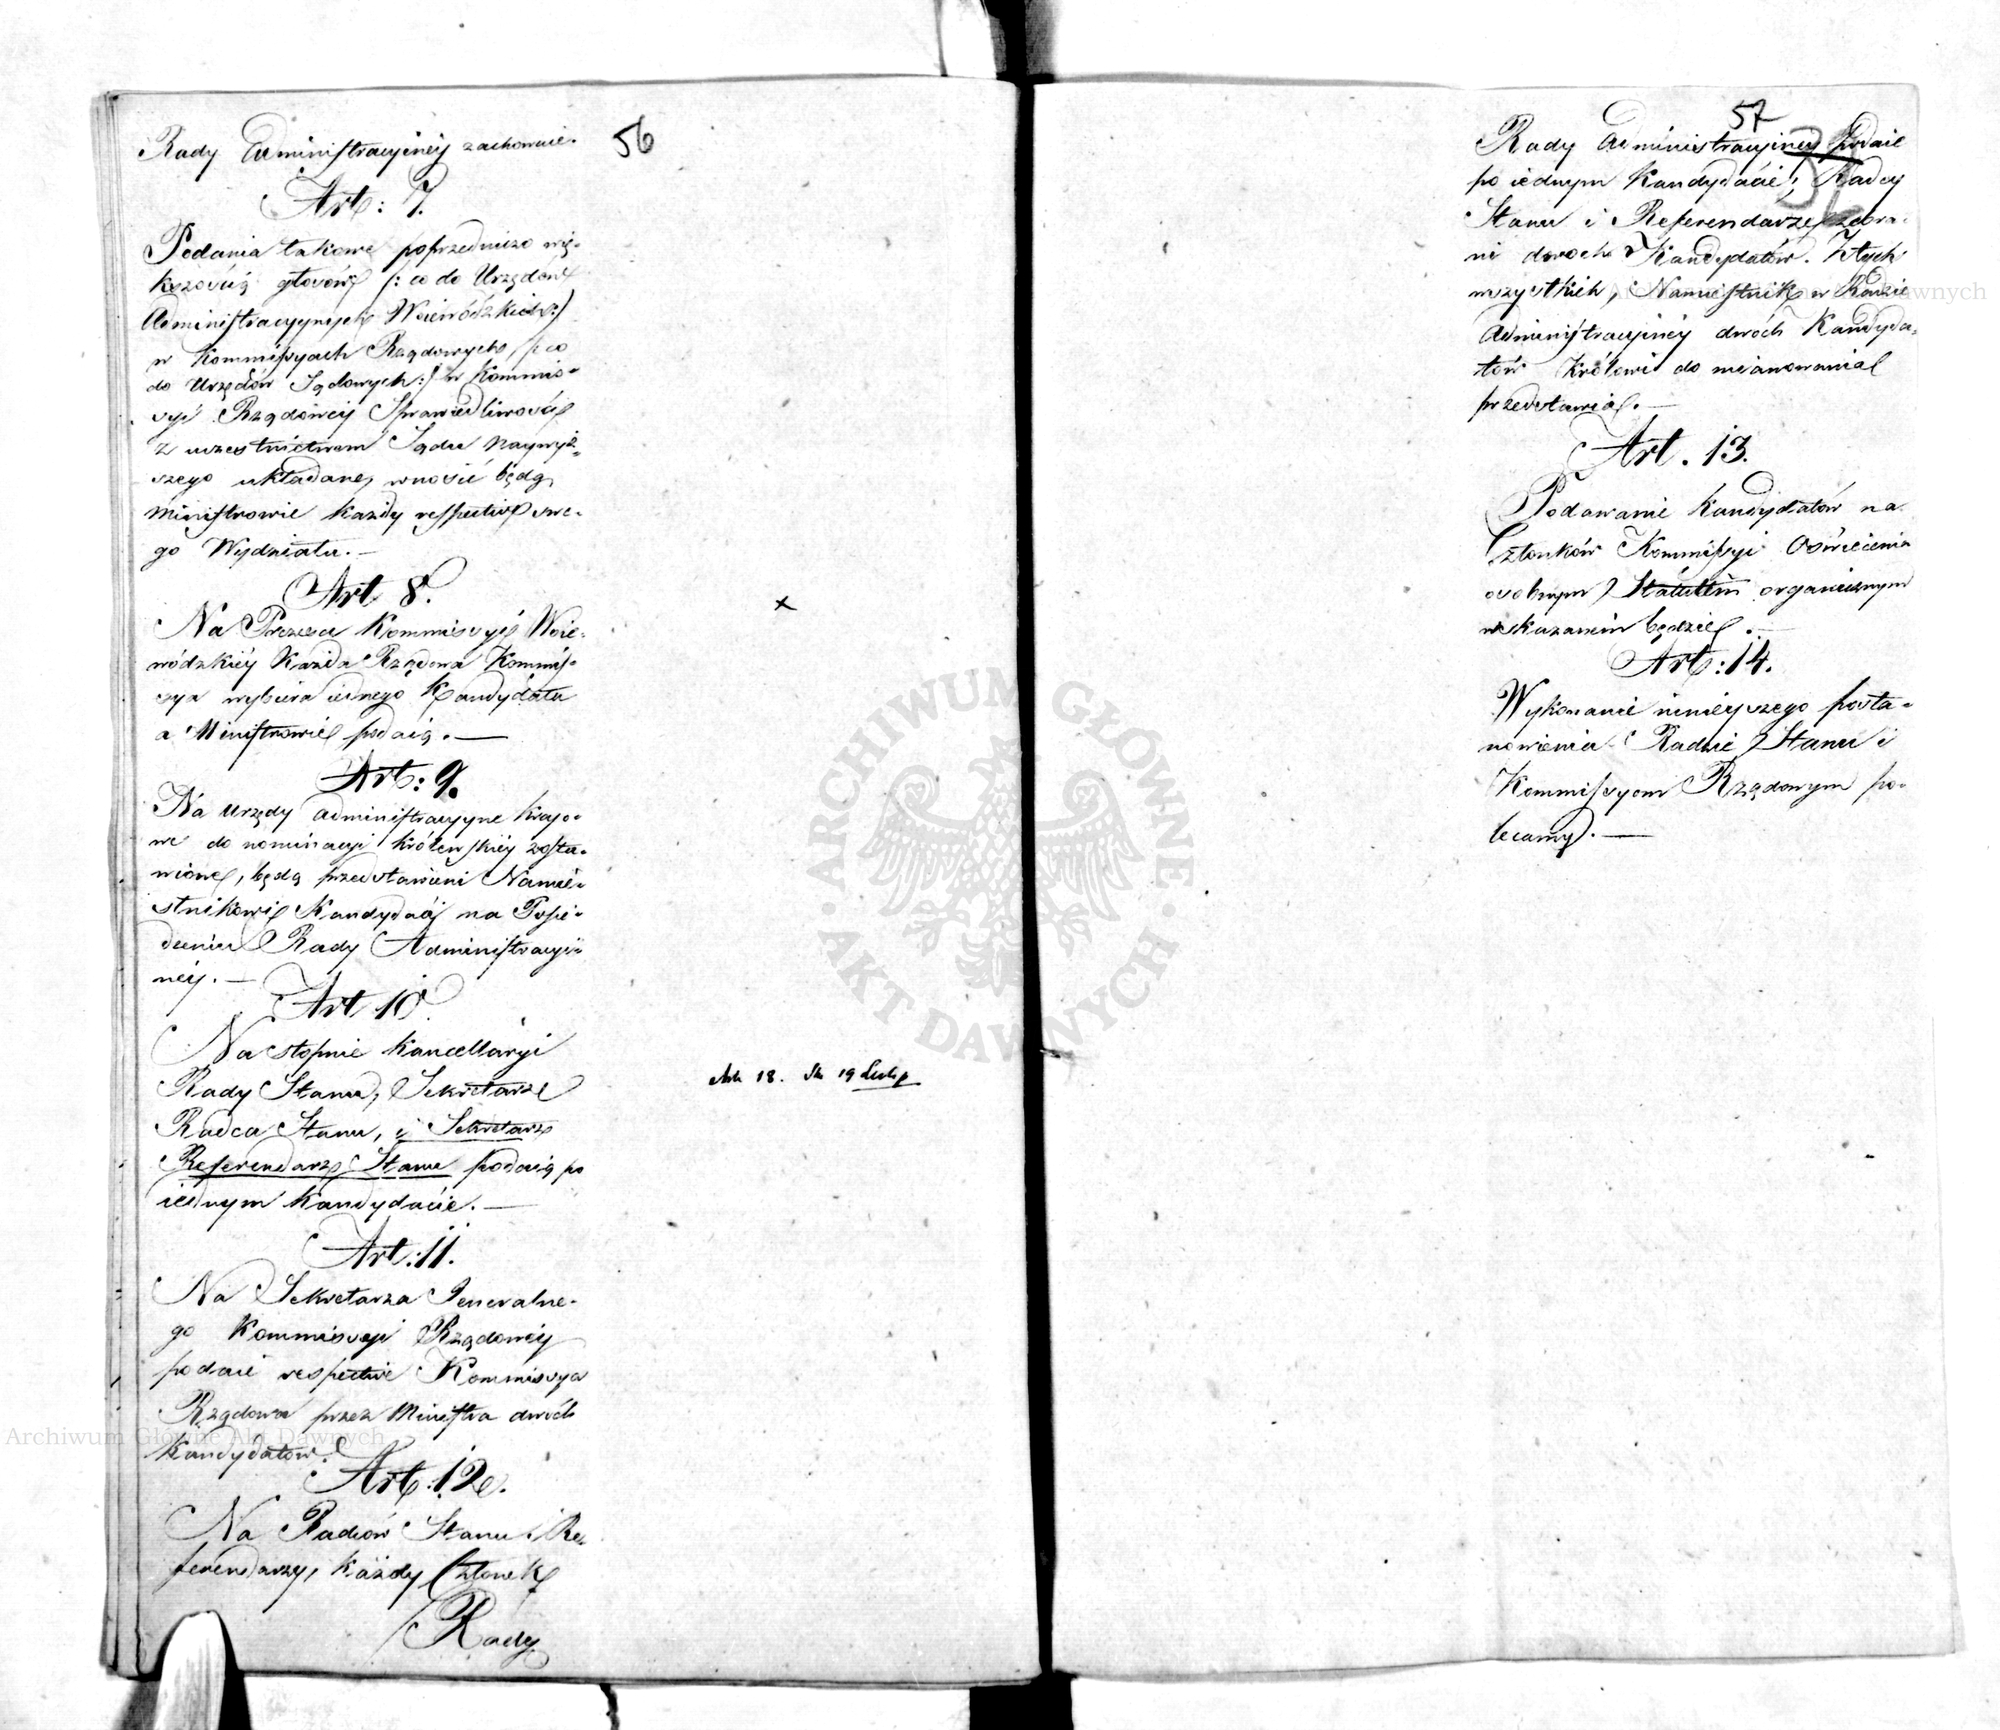 56
Rady Administracyiney zachowuie.
Art: 7.
Podania takowe poprzedniczo wię-
kszością głosów /: co do Urzędów
Administracyinych Woiewódzkich :/
w Kommissyach Rządowych, /: co
do Urzędów Sądowych :/ w Kommis-
syi Rządowéy Sprawiedliwości
z uczestnictwem Sądu Naywyż-
szego układane, wnosić będą
Ministrowie każdy respective swe-
go Wydziału. —
Art 8.
Na Prezesa Kommissyi Woie-
wódzkiéy Każda Rządowa Kommis-
sya wybiera iednego Kandydata
a Ministrowie podaią. —
Art: 9.
Na Urzędy administracyyne krajo-
we do nominacyi królewskiéy zosta-
wione, będą przedstawieni Namie-
stnikowi Kandydaci na Posie-
dzeniu Rady Administracyi-
néy. —
Art 10.
Na stopnie Kancellaryi
Rady Stanu, Sekretarze
Radca Stanu, i Sekretarz
Referendarz Stanu podaią po
iednym Kandydacie. —
Art: 18. 19
Art: 11.
Na Sekretarza Jeneralne-
go Kommissyi Rządowéy
podaie respective Kommissya
Rządowa przez Ministra dwóch
Kandydatów.
Art: 12.
Na Radców Stanu i Re-
ferendarzy, każdy Członek
/Rady
57
Rady Administracyiney podaie
po iednym Kandydacie; Radcy
Stanu i Referendarze zebra-
ni dwóch Kandydatów. Z tych
wszystkich, Namiestnik w Radzie
Administracyinéy dwóch Kandyda-
tów Królowi do mianowania
przedstawia. —
Art. 13.
Podawanie kandydatów na
Członków Kommissyi Oświecenia
osobnym Statutem organicznym
wskazanem będzie. —
Art: 14.
Wykonanie ninieyszego posta-
nowienia Radzie Stanu i
Kommissyom Rządowym po-
lecamy. —
ARCHIWUM GŁÓWNE
AKT DAWNYCH
Archiwum Główne Akt Dawnych
Archiwum Główne Akt Dawnych